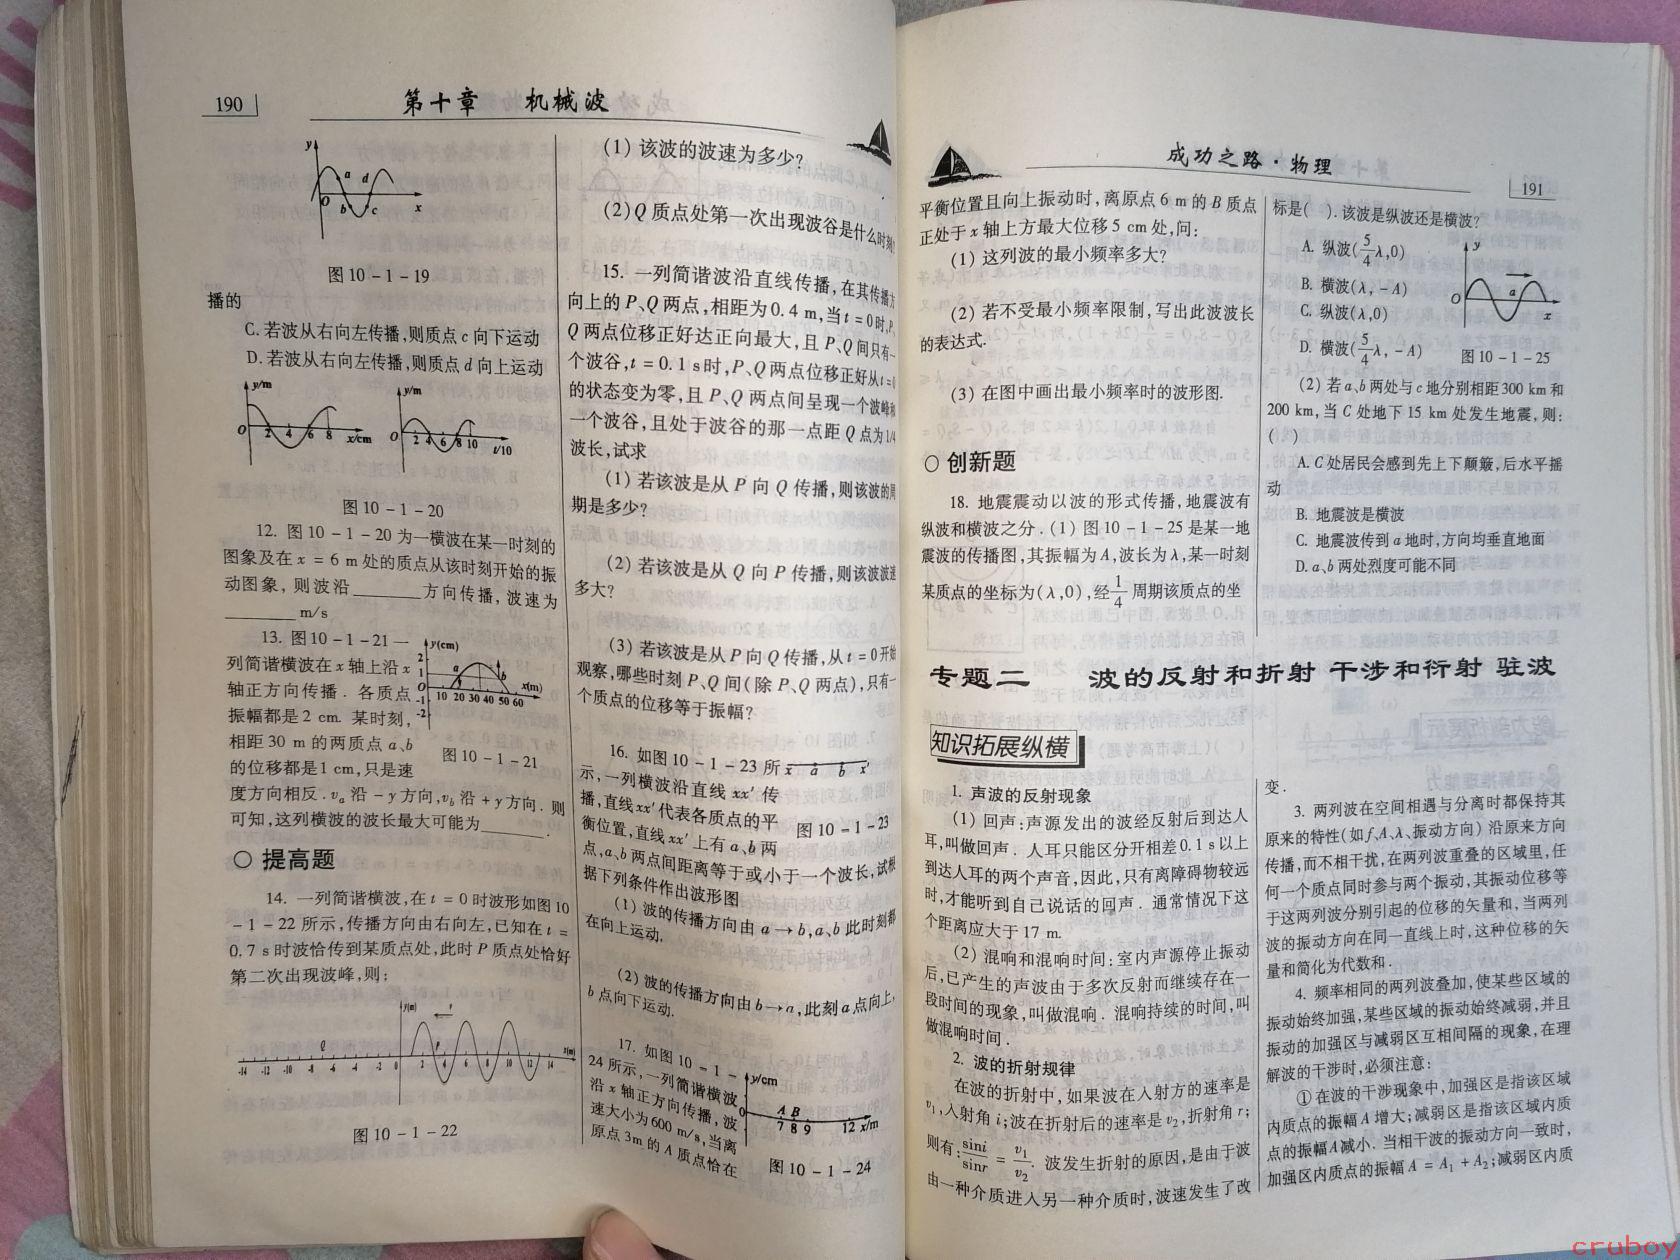 190
第十章 机械波
y
a
d
O
b
c
x
图10-1-19
播的
C.若波从右向左传播,则质点c向下运动
D.若波从右向左传播,则质点d向上运动
y/m
O
2 4 6 8 x/cm
y/m
O
2 4 6 8 10 t/10
图10-1-20
12. 图10-1-20为一横波在某一时刻的
图象及在x=6 m处的质点从该时刻开始的振
动图象,则波沿______方向传播,波速为
______m/s
13. 图10-1-21一
列简谐横波在x轴上沿x
轴正方向传播. 各质点
振幅都是2 cm. 某时刻,
相距30 m的两质点a、b
的位移都是1 cm,只是速
度方向相反.va沿-y方向,vb沿+y方向. 则
可知,这列横波的波长最大可能为______.
y(cm)
2
1
O
-1
-2
a
b
10 20 30 40 50 60
x(m)
图10-1-21
○ 提高题
14. 一列简谐横波,在t=0时波形如图10
-1-22所示,传播方向由右向左,已知在t=
0.7 s时波恰传到某质点处,此时P质点处恰好
第二次出现波峰,则;
y(m)
Q
P
x(m)
-14 -12 -10 -8 -6 -4 -2 0 2 4 6 8 10 12 14
图10-1-22
(1) 该波的波速为多少?
(2)Q质点处第一次出现波谷是什么时刻?
15. 一列简谐波沿直线传播,在其传播方
向上的P、Q两点,相距为0.4 m,当t=0时,P、
Q两点位移正好达正向最大,且P、Q间只有一
个波谷,t=0.1 s时,P、Q两点位移正好从t=0
的状态变为零,且P、Q两点间呈现一个波峰和
一个波谷,且处于波谷的那一点距Q点为1/4
波长,试求
(1) 若该波是从P向Q传播,则该波的周
期是多少?
(2) 若该波是从Q向P传播,则该波波速
多大?
(3) 若该波是从P向Q传播,从t=0开始
观察,哪些时刻P、Q间(除P、Q两点),只有一
个质点的位移等于振幅?
16. 如图10-1-23所
示,一列横波沿直线xx′传
播,直线xx′代表各质点的平
衡位置,直线xx′上有a、b两
点,a、b两点间距离等于或小于一个波长,试根
据下列条件作出波形图
x a b x′
图10-1-23
(1) 波的传播方向由a→b,a、b此时刻都
在向上运动.
(2) 波的传播方向由b→a,此刻a点向上,
b点向下运动.
17. 如图10-1-
24所示,一列简谐横波
沿x轴正方向传播,波
速大小为600 m/s,当离
原点3m的A质点恰在
y/cm
0
A B
7 8 9 12 x/m
图10-1-24
成功之路·物理
191
平衡位置且向上振动时,离原点6 m的B质点
正处于x轴上方最大位移5 cm处,问:
(1) 这列波的最小频率多大?
(2) 若不受最小频率限制,写出此波波长
的表达式.
(3) 在图中画出最小频率时的波形图.
○ 创新题
18. 地震震动以波的形式传播,地震波有
纵波和横波之分.(1) 图10-1-25是某一地
震波的传播图,其振幅为A,波长为λ,某一时刻
某质点的坐标为(λ,0),经1/4周期该质点的坐
标是( ).该波是纵波还是横波?
A. 纵波(5/4λ,0)
B. 横波(λ,-A)
C. 纵波(λ,0)
D. 横波(5/4λ,-A)
y
O
a
x
图10-1-25
(2) 若a、b两处与c地分别相距300 km和
200 km,当C处地下15 km处发生地震,则:
( )
A. C处居民会感到先上下颠簸,后水平摇
动
B. 地震波是横波
C. 地震波传到a地时,方向均垂直地面
D. a、b两处烈度可能不同
专题二 波的反射和折射 干涉和衍射 驻波
知识拓展纵横
1. 声波的反射现象
(1) 回声:声源发出的波经反射后到达人
耳,叫做回声. 人耳只能区分开相差0.1 s以上
到达人耳的两个声音,因此,只有离障碍物较远
时,才能听到自己说话的回声. 通常情况下这
个距离应大于17 m.
(2) 混响和混响时间:室内声源停止振动
后,已产生的声波由于多次反射而继续存在一
段时间的现象,叫做混响. 混响持续的时间,叫
做混响时间.
2. 波的折射规律
在波的折射中,如果波在入射方的速率是
v1,入射角i;波在折射后的速率是v2,折射角r;
则有:sini/sinr=v1/v2. 波发生折射的原因,是由于波
由一种介质进入另一种介质时,波速发生了改
变.
3. 两列波在空间相遇与分离时都保持其
原来的特性(如f、A、λ、振动方向)沿原来方向
传播,而不相干扰,在两列波重叠的区域里,任
何一个质点同时参与两个振动,其振动位移等
于这两列波分别引起的位移的矢量和,当两列
波的振动方向在同一直线上时,这种位移的矢
量和简化为代数和.
4. 频率相同的两列波叠加,使某些区域的
振动始终加强,某些区域的振动始终减弱,并且
振动的加强区与减弱区互相间隔的现象,在理
解波的干涉时,必须注意:
①在波的干涉现象中,加强区是指该区域
内质点的振幅A增大;减弱区是指该区域内质
点的振幅A减小. 当相干波的振动方向一致时,
加强区内质点的振幅A=A1+A2;减弱区内质
cruboy